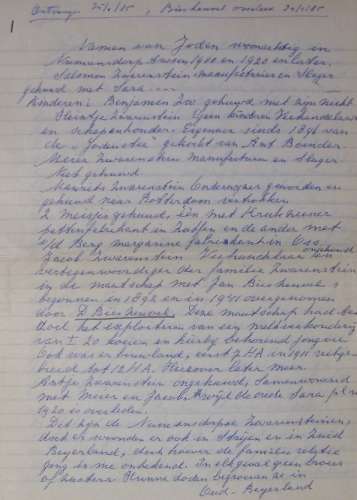 1
Ontvangen 25/1/85, Biesheuvel overleed 30/1/85
Namen van Joden woonachtig in
Numansdorp tussen 1900 en 1920 en later.
Salomon Zwarenstein manufacturier en Slager
gehuwd met Sara ....
Kinderen: Benjamin Zoo gehuwd met zijn nicht
Steintje Zwarenstein Geen kinderen Veehandelaar
en schapenhouder. Eigenaar sinds 1896 van
de "Jodenstee" gekocht van Ant Boender.
Meier Zwarenstein manufacturen en Slager
Niet gehuwd.
Zwarenstein Onderwijzer geworden en
gehuwd naar Rotterdam vertrokken
2 Meisjes gehuwd, één met
pettenfabrikant en de ander met
v/d Berg margarine fabrikant in Oss
Jacob Zwarenstein Veehandelaar en ongehuwd
vertegenwoordiger der familie Zwarenstein
in de maatschap met Jan Biesheuvel
begonnen in 1892 en in 1941 overgenomen
door Biesheuvel. Deze maatschap had ten
doel het exploiteren van een melkveehouderij
van ± 20 koeien en hierbij behorend jongvee
Ook was er bouwland, eerst 7 HA in 1911 uitge-
breid tot 12 HA. Hierover later meer.
Zwarenstein ongehuwd, samenwonend
met Meier en Jacob, terwijl de oude Sara
1920 is overleden.
Dit zijn de Numansdorpse Zwarensteinen,
doch er woonden er ook in Strijen en in Zuid
Beijerland, doch hoever de familie relatie
ging is me onbekend. In elk geval geen broers
of zusters. Hunne doden begroeven ze in
Oud-Beijerland